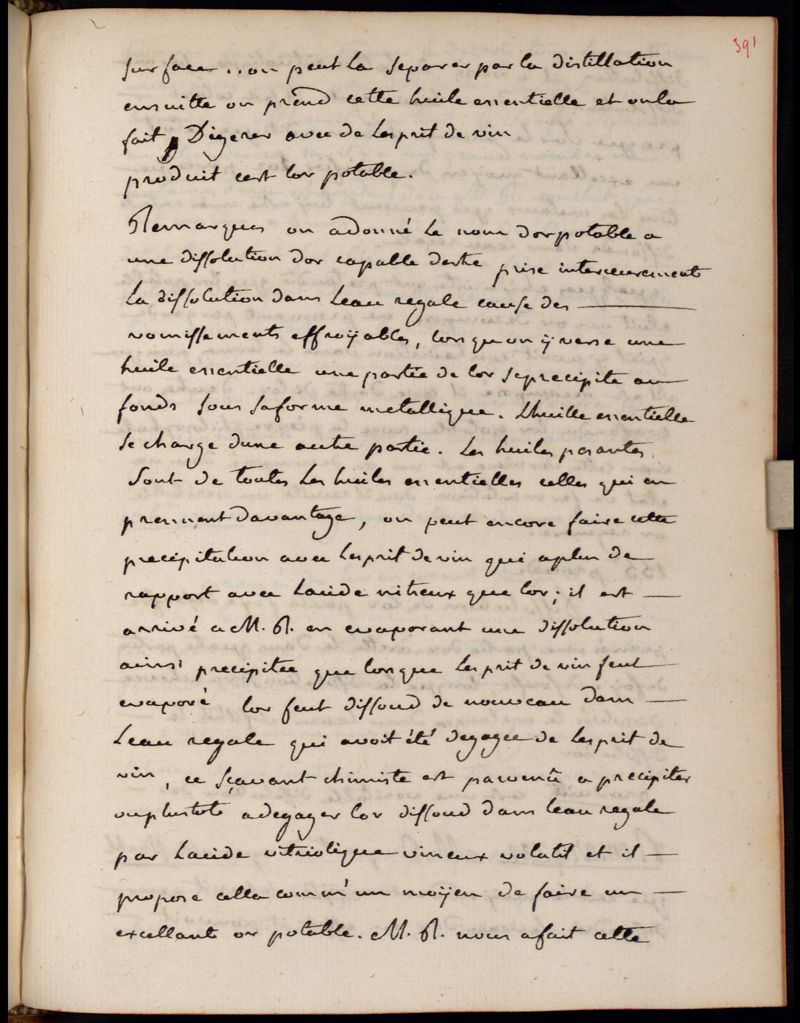 391
surface .. on peut la separer par la distillation
ensuitte on prend cette huile essentielle et on la
fait Digerer avec de lesprit de vin
produit cest lor potable.
Remarques on adonné le nom dorpotable a
une dissolution dor capable destre prise interieurement
La dissolution dans Leau regale cause des
vomissements effroÿables, lorsquon ÿ verse une
huile essentielle une partie de lor seprecipite au
fonds sous saforme metallique. Lhuille essentielle
se charge dune autre partie. Les huiles pesantes
sont de toutes Les huiles essentielles celles qui en
prennent davantage, on peut encore faire cette
precipitation avec Lesprit de vin qui aplus de
rapport avec Lacide nitreux que lor; il est
arrivé a M. R. en evaporant une dissolution
ainsi precipitée que lorsque Lesprit de vin feut
evaporé lor feut dissoud de nouveau dans
Leau regale qui avoit été degagée de Lesprit de
vin, ce sçavant chimiste est parvenu a precipiter
ouplustot adegager lor dissoud dans leau regale
par Lacide vitriolique vineux volatil et il
propose cella comm'un moÿen de faire un
excellant or potable. M. R. nous afait cette